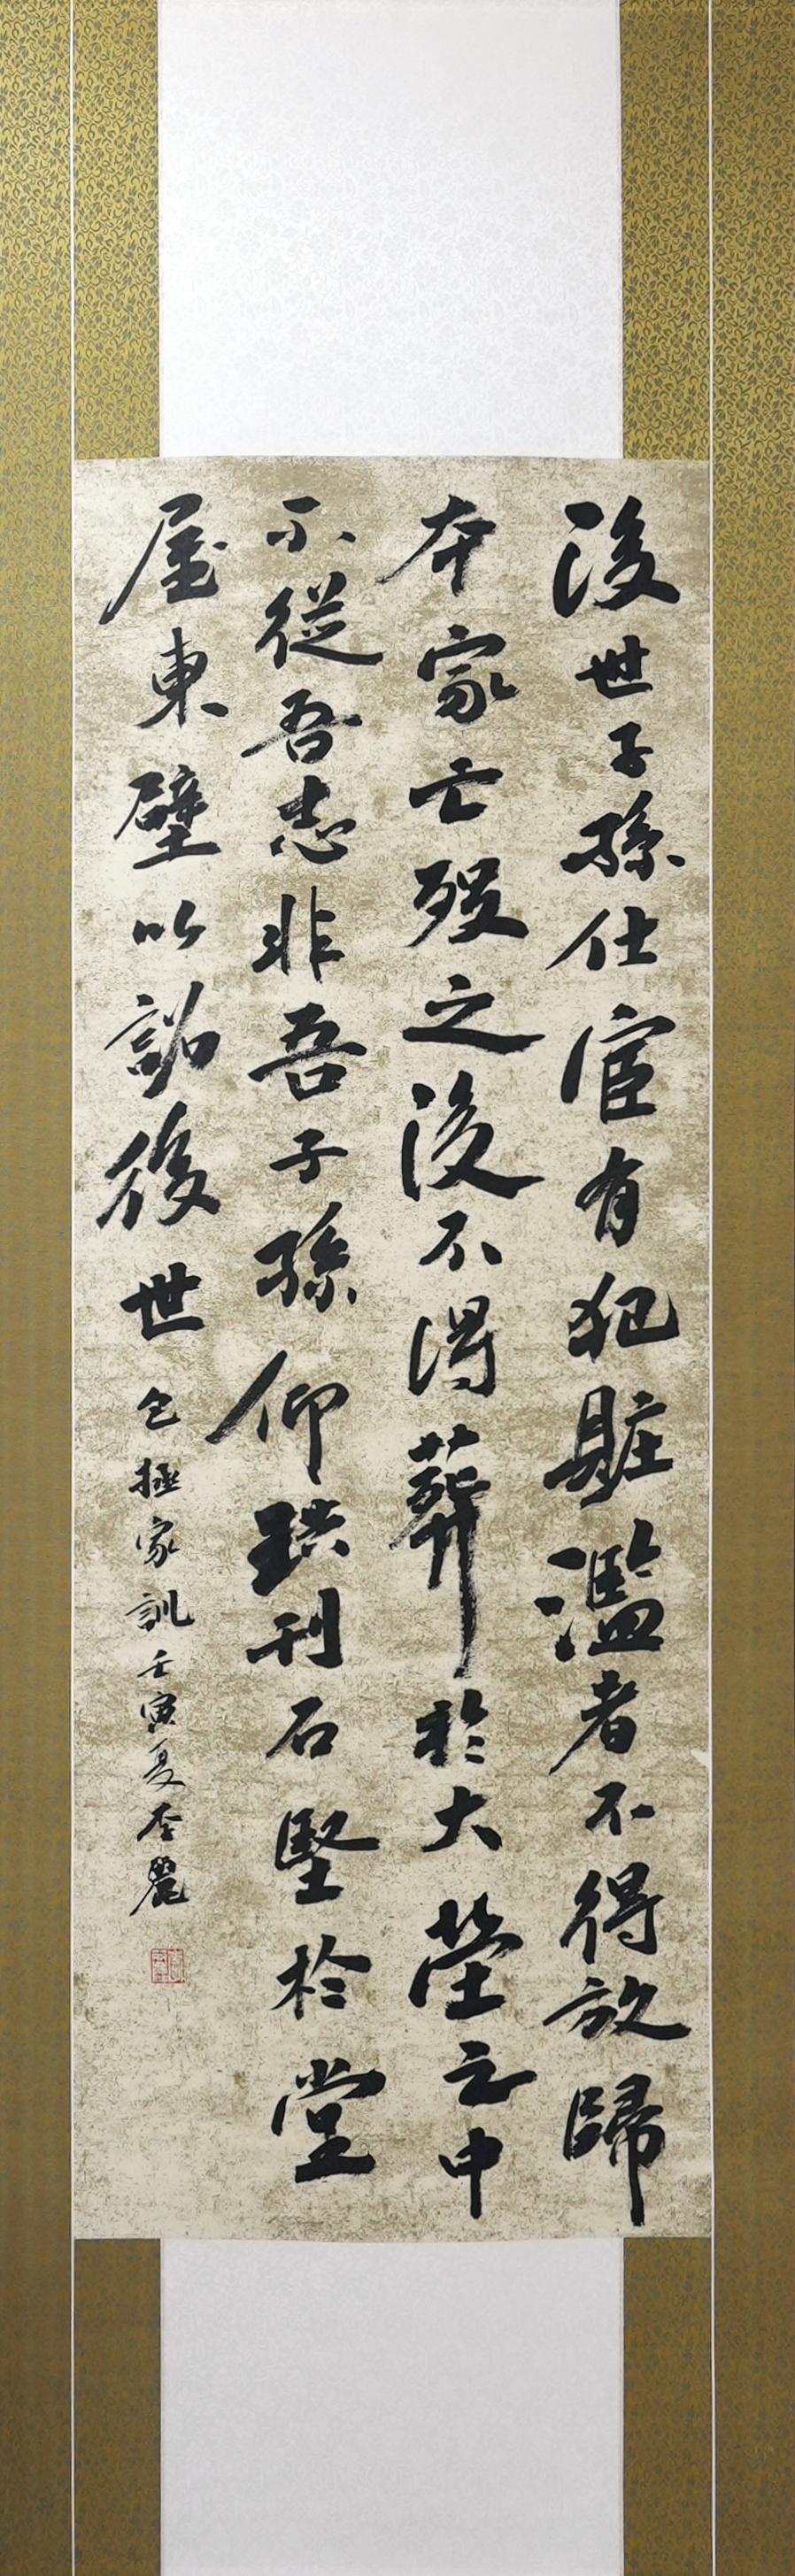 後世子孫仕宦有犯賍濫者不得放歸
本家亡歿之後不得葬於大塋之中
不從吾志非吾子孫仰珙刊石竪於堂
屋東壁以詔後世
包拯家訓壬寅夏李麗